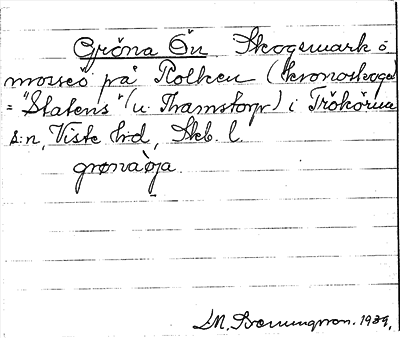 Gröna Ön Skogsmark ö
mosseö på Rolken (kronoskogen
= "Statens" (u. Thamstorp) i Trökörna
s:n, Viste hd, Skb. l.
grønaøja.
1939.